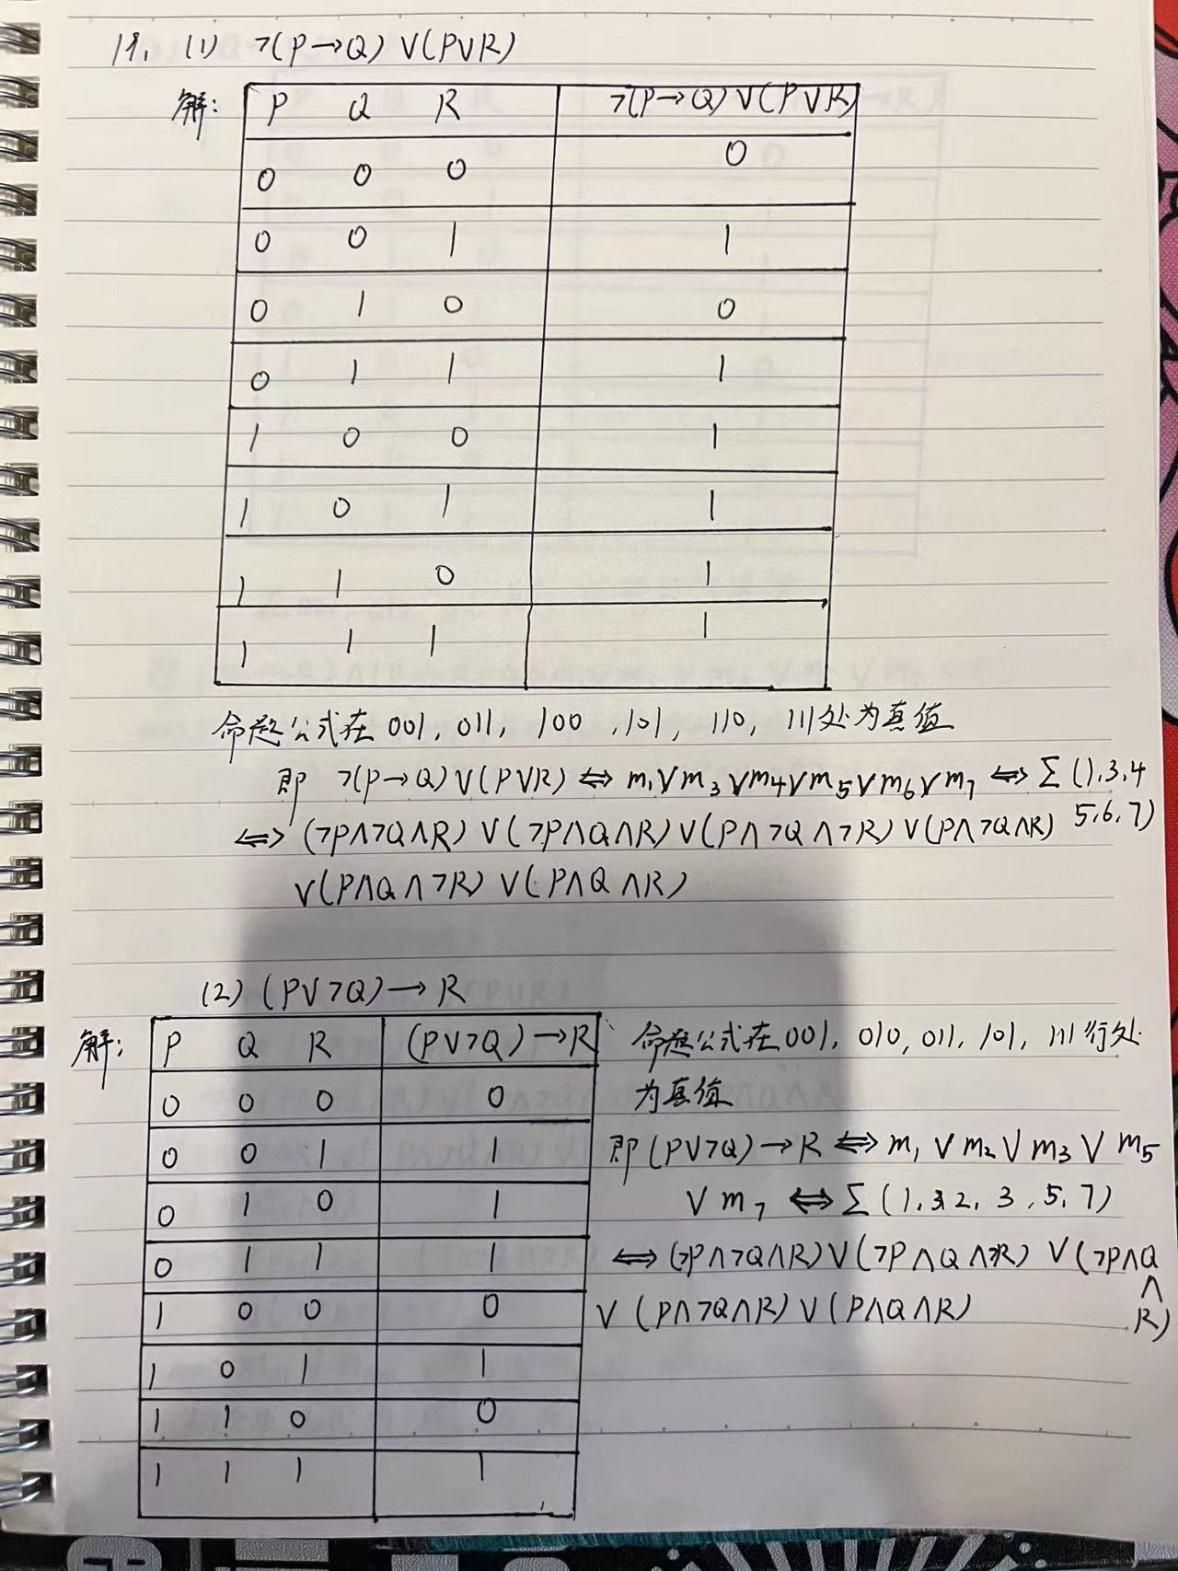 19. (1) ¬(P→Q)∨(P∨R)
解:
P Q R ¬(P→Q)∨(P∨R)
0 0 0 0
0 0 1 1
0 1 0 0
0 1 1 1
1 0 0 1
1 0 1 1
1 1 0 1
1 1 1 1
命题公式在001, 011, 100, 101, 110, 111处为真值
即 ¬(P→Q)∨(P∨R) ⇔ m₁∨m₃∨m₄∨m₅∨m₆∨m₇ ⇔ Σ(1,3,4
5,6,7)
⇔ (¬P∧¬Q∧R)∨(¬P∧Q∧R)∨(P∧¬Q∧¬R)∨(P∧¬Q∧R)
∨(P∧Q∧¬R)∨(P∧Q∧R)
(2) (P∨¬Q)→R
解:
P Q R (P∨¬Q)→R
0 0 0 0
0 0 1 1
0 1 0 1
0 1 1 1
1 0 0 0
1 0 1 1
1 1 0 0
1 1 1 1
命题公式在001, 010, 011, 101, 111行处
为真值
即(P∨¬Q)→R ⇔ m₁∨m₂∨m₃∨m₅
∨m₇ ⇔ Σ(1, 2, 3, 5, 7)
⇔ (¬P∧¬Q∧R)∨(¬P∧Q∧¬R)∨(¬P∧Q
∧
R)
∨(P∧¬Q∧R)∨(P∧Q∧R)